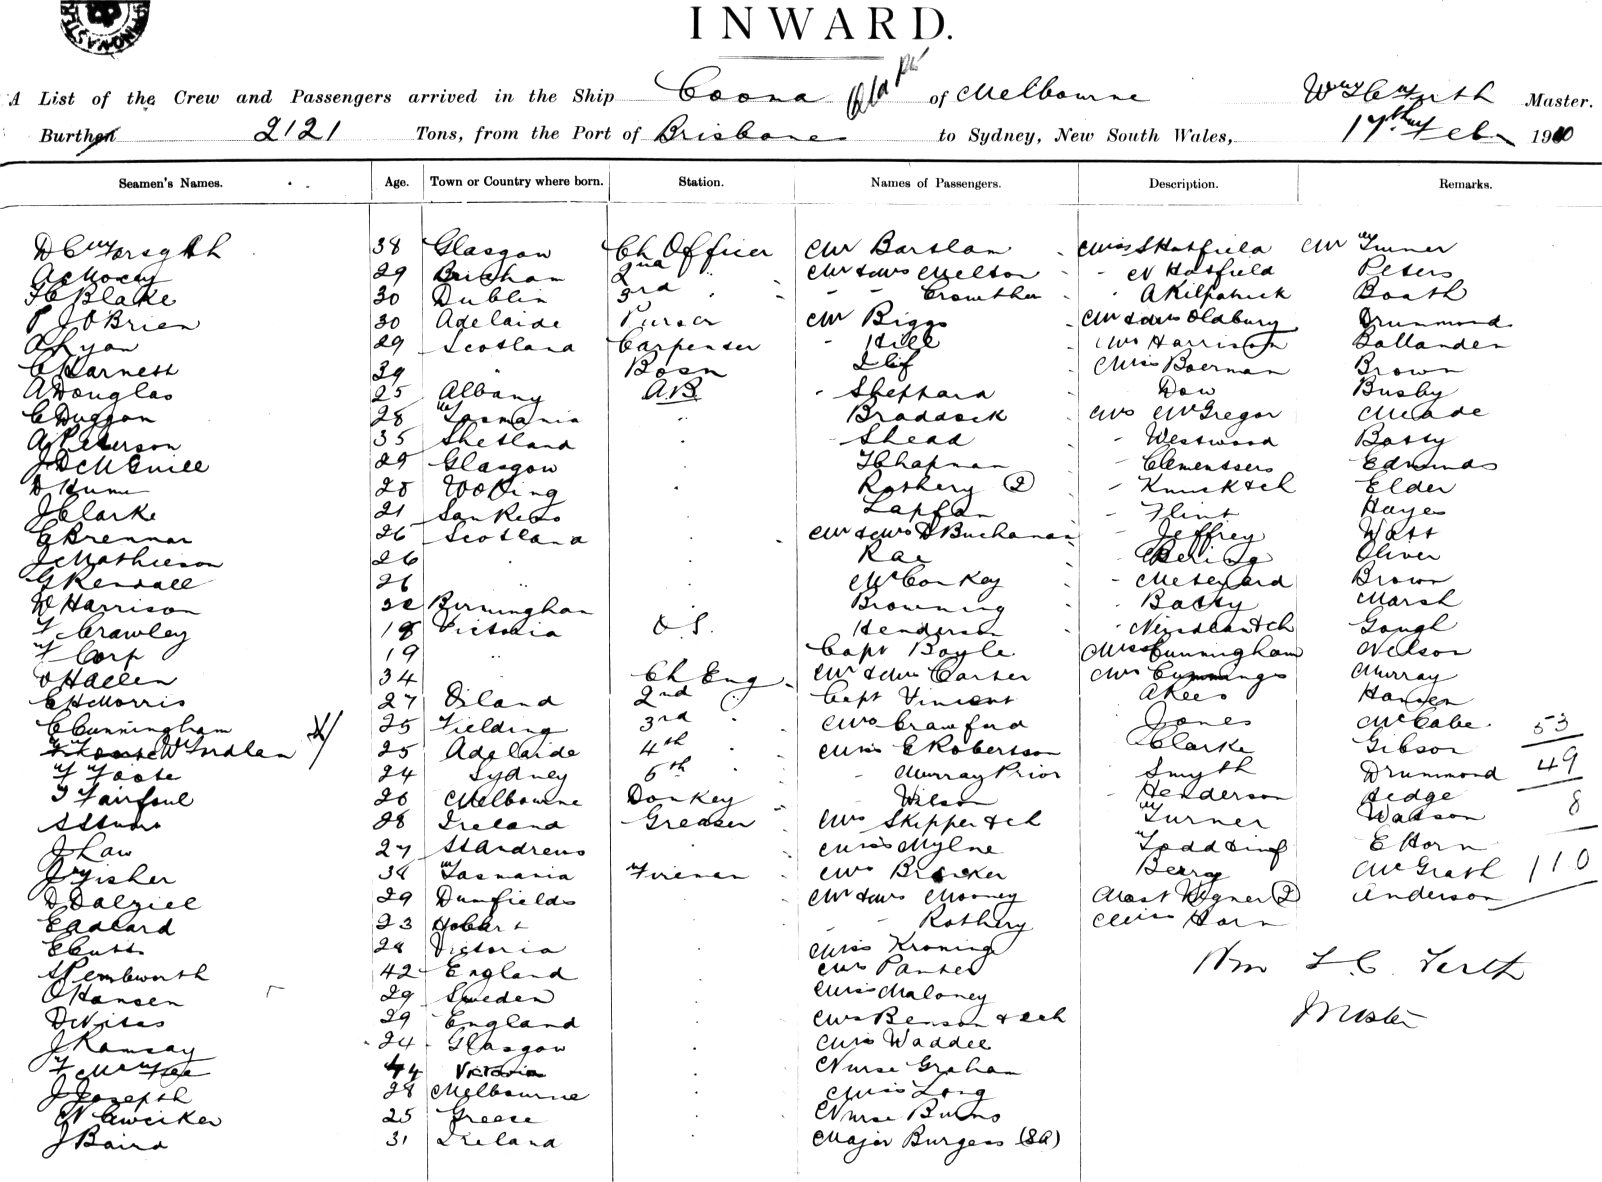 INWARD.
A List of the Crew and Passengers arrived in the Ship Coona of Melbourne Master.
Burthen 2121 Tons, from the Port of Brisbane to Sydney, New South Wales, 17th Feb 1910
Seamen's Names. Age. Town or Country where born. Station. Names of Passengers. Description. Remarks.
D C Forsyth 38 Glasgow Ch Officer Mr Barslam Miss S Hatfield Mr Turner
29 Brixham 2nd " Mr & Mrs Melson - N Hatfield Peters
F C Blake 30 Dublin 3rd " - - Crowther " A Kilpatrick Booth
P J O'Brien 30 Adelaide Purser Mr Biggs Mr & Mrs Oldbury Drummond
A Lyon 29 Scotland Carpenter - Hill Mrs Harrison Ballanden
C Harnett 39 " Bosn Miss Boerman Brown
A Douglas 25 Albany A.B - Shephard Dow Busby
C Duggan 28 Tasmania " Braddock Mrs McGregor Meade
A Peterson 35 Shetland " Shead - Westwood Batty
29 Glasgow T Chapman - Edmunds
D Hume 28 Woking Rothery (2) - Elder
J Clarke 21 Lapfan - Flint Hayes
C Brennan 26 Scotland Mr & Mrs D Buchanan - Jeffrey Watt
J Mathieson 26 " Rae Oliver
G Kendall 26 " McConkey - Brown
W Harrison Birmingham Browning " Batty Marsh
F Crawley 18 Victoria O.S. Henderson Gough
F Corp 19 " Capt Boyle Miss Cunningham Nelson
O Hallen 34 Ch Eng Mr & Mrs Carter Mrs Cummings Murray
C H Morris 27 2nd " Capt Vincent A Rees Hansen
C Cunningham 25 Fielding 3rd " Mrs Crawford Jones McCabe 53
25 Adelaide 4th " Miss E Robertson Clarke Gibson
F Foote 24 Sydney 5th " - Murray Prior Smyth Drummond 49
T Fairfoul 26 Melbourne Donkey - Wilson - Henderson Hedge
28 Ireland Greaser Mrs Skipper & ch Turner Watson 8
J Law 27 St Andrews Miss Mylne Todd & inf E Horn
J Fisher 38 Tasmania Fireman Mrs Brooker Berry McGrath 110
D Dalziel 29 Dumfields Mr & Mrs Mooney Mast Wagner (2) Anderson
E Adlard 23 Hobart - Rothery Miss Horn
E Cutts 28 Victoria Miss Kroning
S Pembworth 42 England Mrs Panter
O Hansen 29 Sweden Miss Maloney
29 England Mrs Benson & ch
J Ramsay 24 Glasgow Miss Waddell
44 Victoria Nurse Graham
J Joseph 28 Melbourne Miss Long
25 Greece Nurse Burns
J Baird 31 Ireland Major Burgess (SA)
Wm
Master